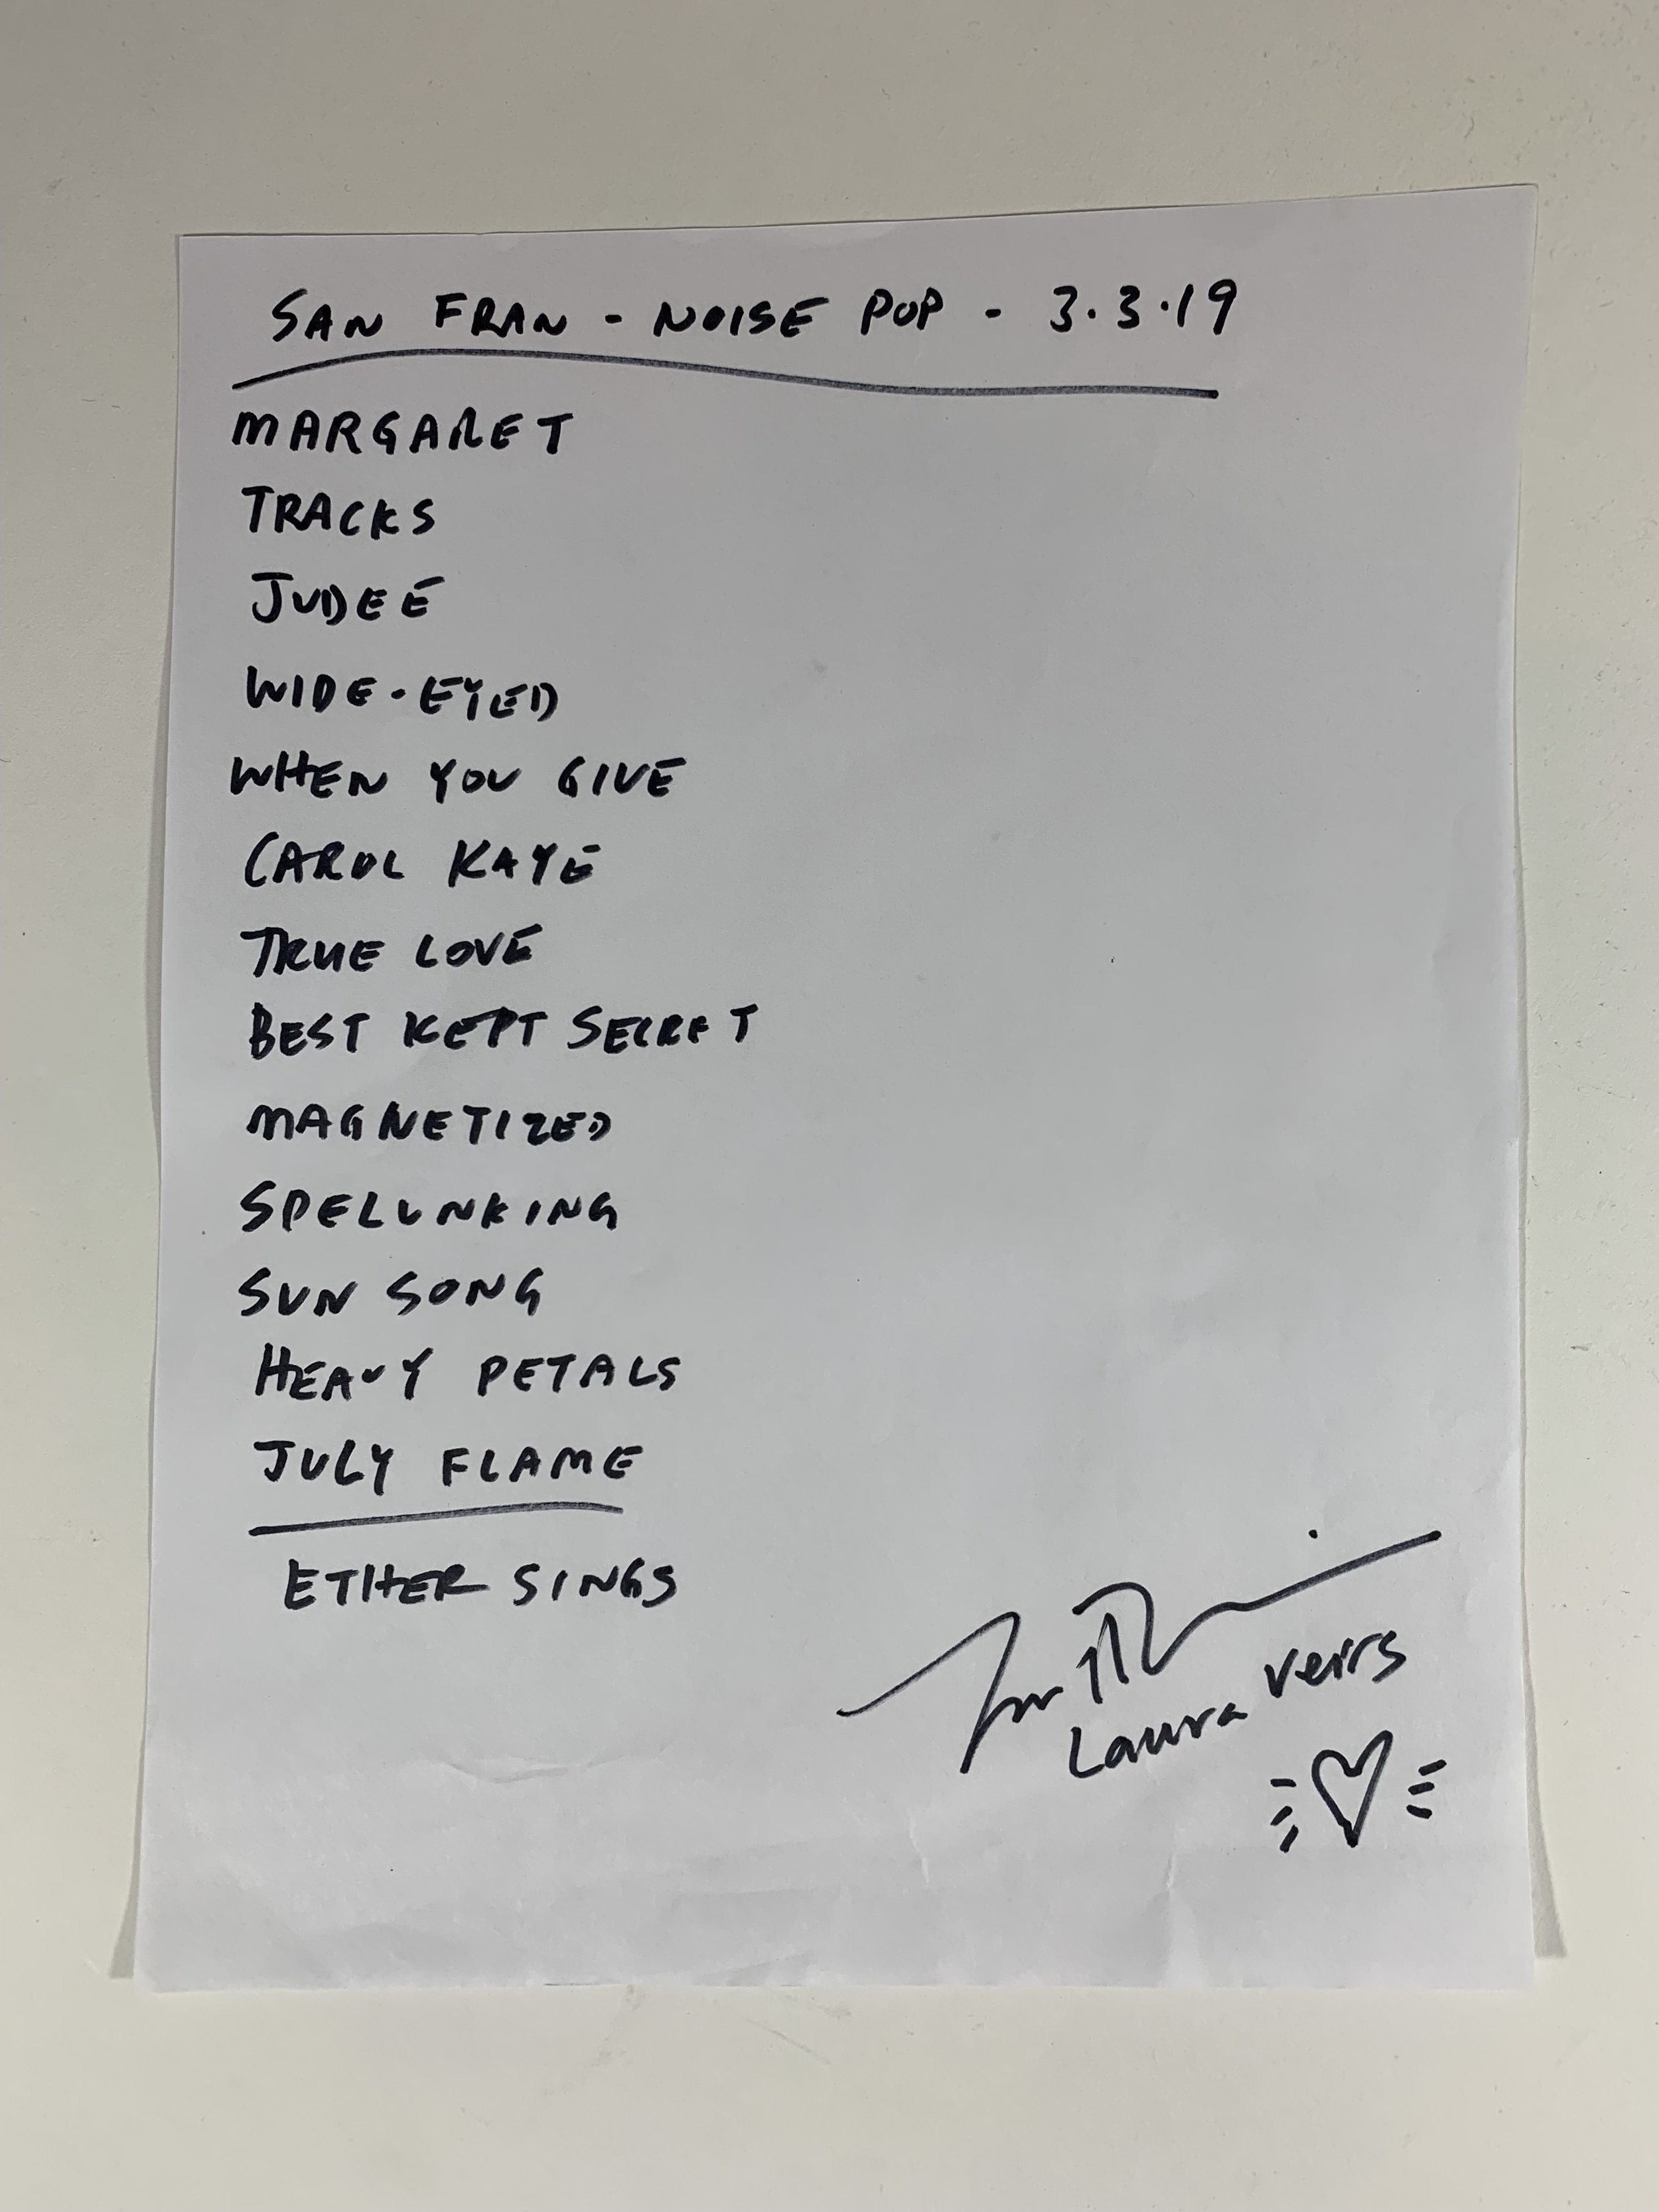 SAN FRAN - NOISE POP - 3.3.19
MARGARET
TRACKS
JUDEE
WIDE-EYED
WHEN YOU GIVE
CAROL KAYE
TRUE LOVE
BEST KEPT SECRET
MAGNETIZED
SPELUNKING
SUN SONG
HEAVY PETALS
JULY FLAME
ETHER SINGS
Laura Veirs